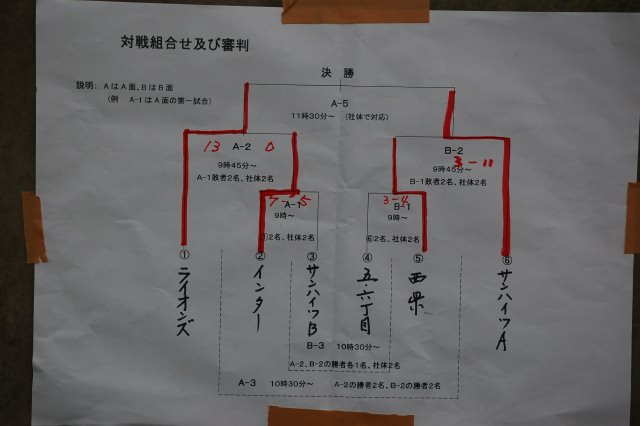 対戦組合せ及び審判
決 勝
説明: AはA面、BはB面
(例 A-1はA面の第一試合)
A-5
11時30分～ (社体で対応)
13 A-2 0
9時45分～
A-1敗者2名、社体2名
B-2
3-11
9時45分～
B-1敗者2名、社体2名
7-5
A-1
9時～
①2名、社体2名
3-4
B-1
9時～
⑥2名、社体2名
① ② ③ ④ ⑤ ⑥
ライオンズ
インター
サンハイツB
五・六丁目
西栄
サンハイツA
B-3 10時30分～
A-2、B-2の勝者各1名、社体2名
A-3 10時30分～ A-2の勝者2名、B-2の勝者2名